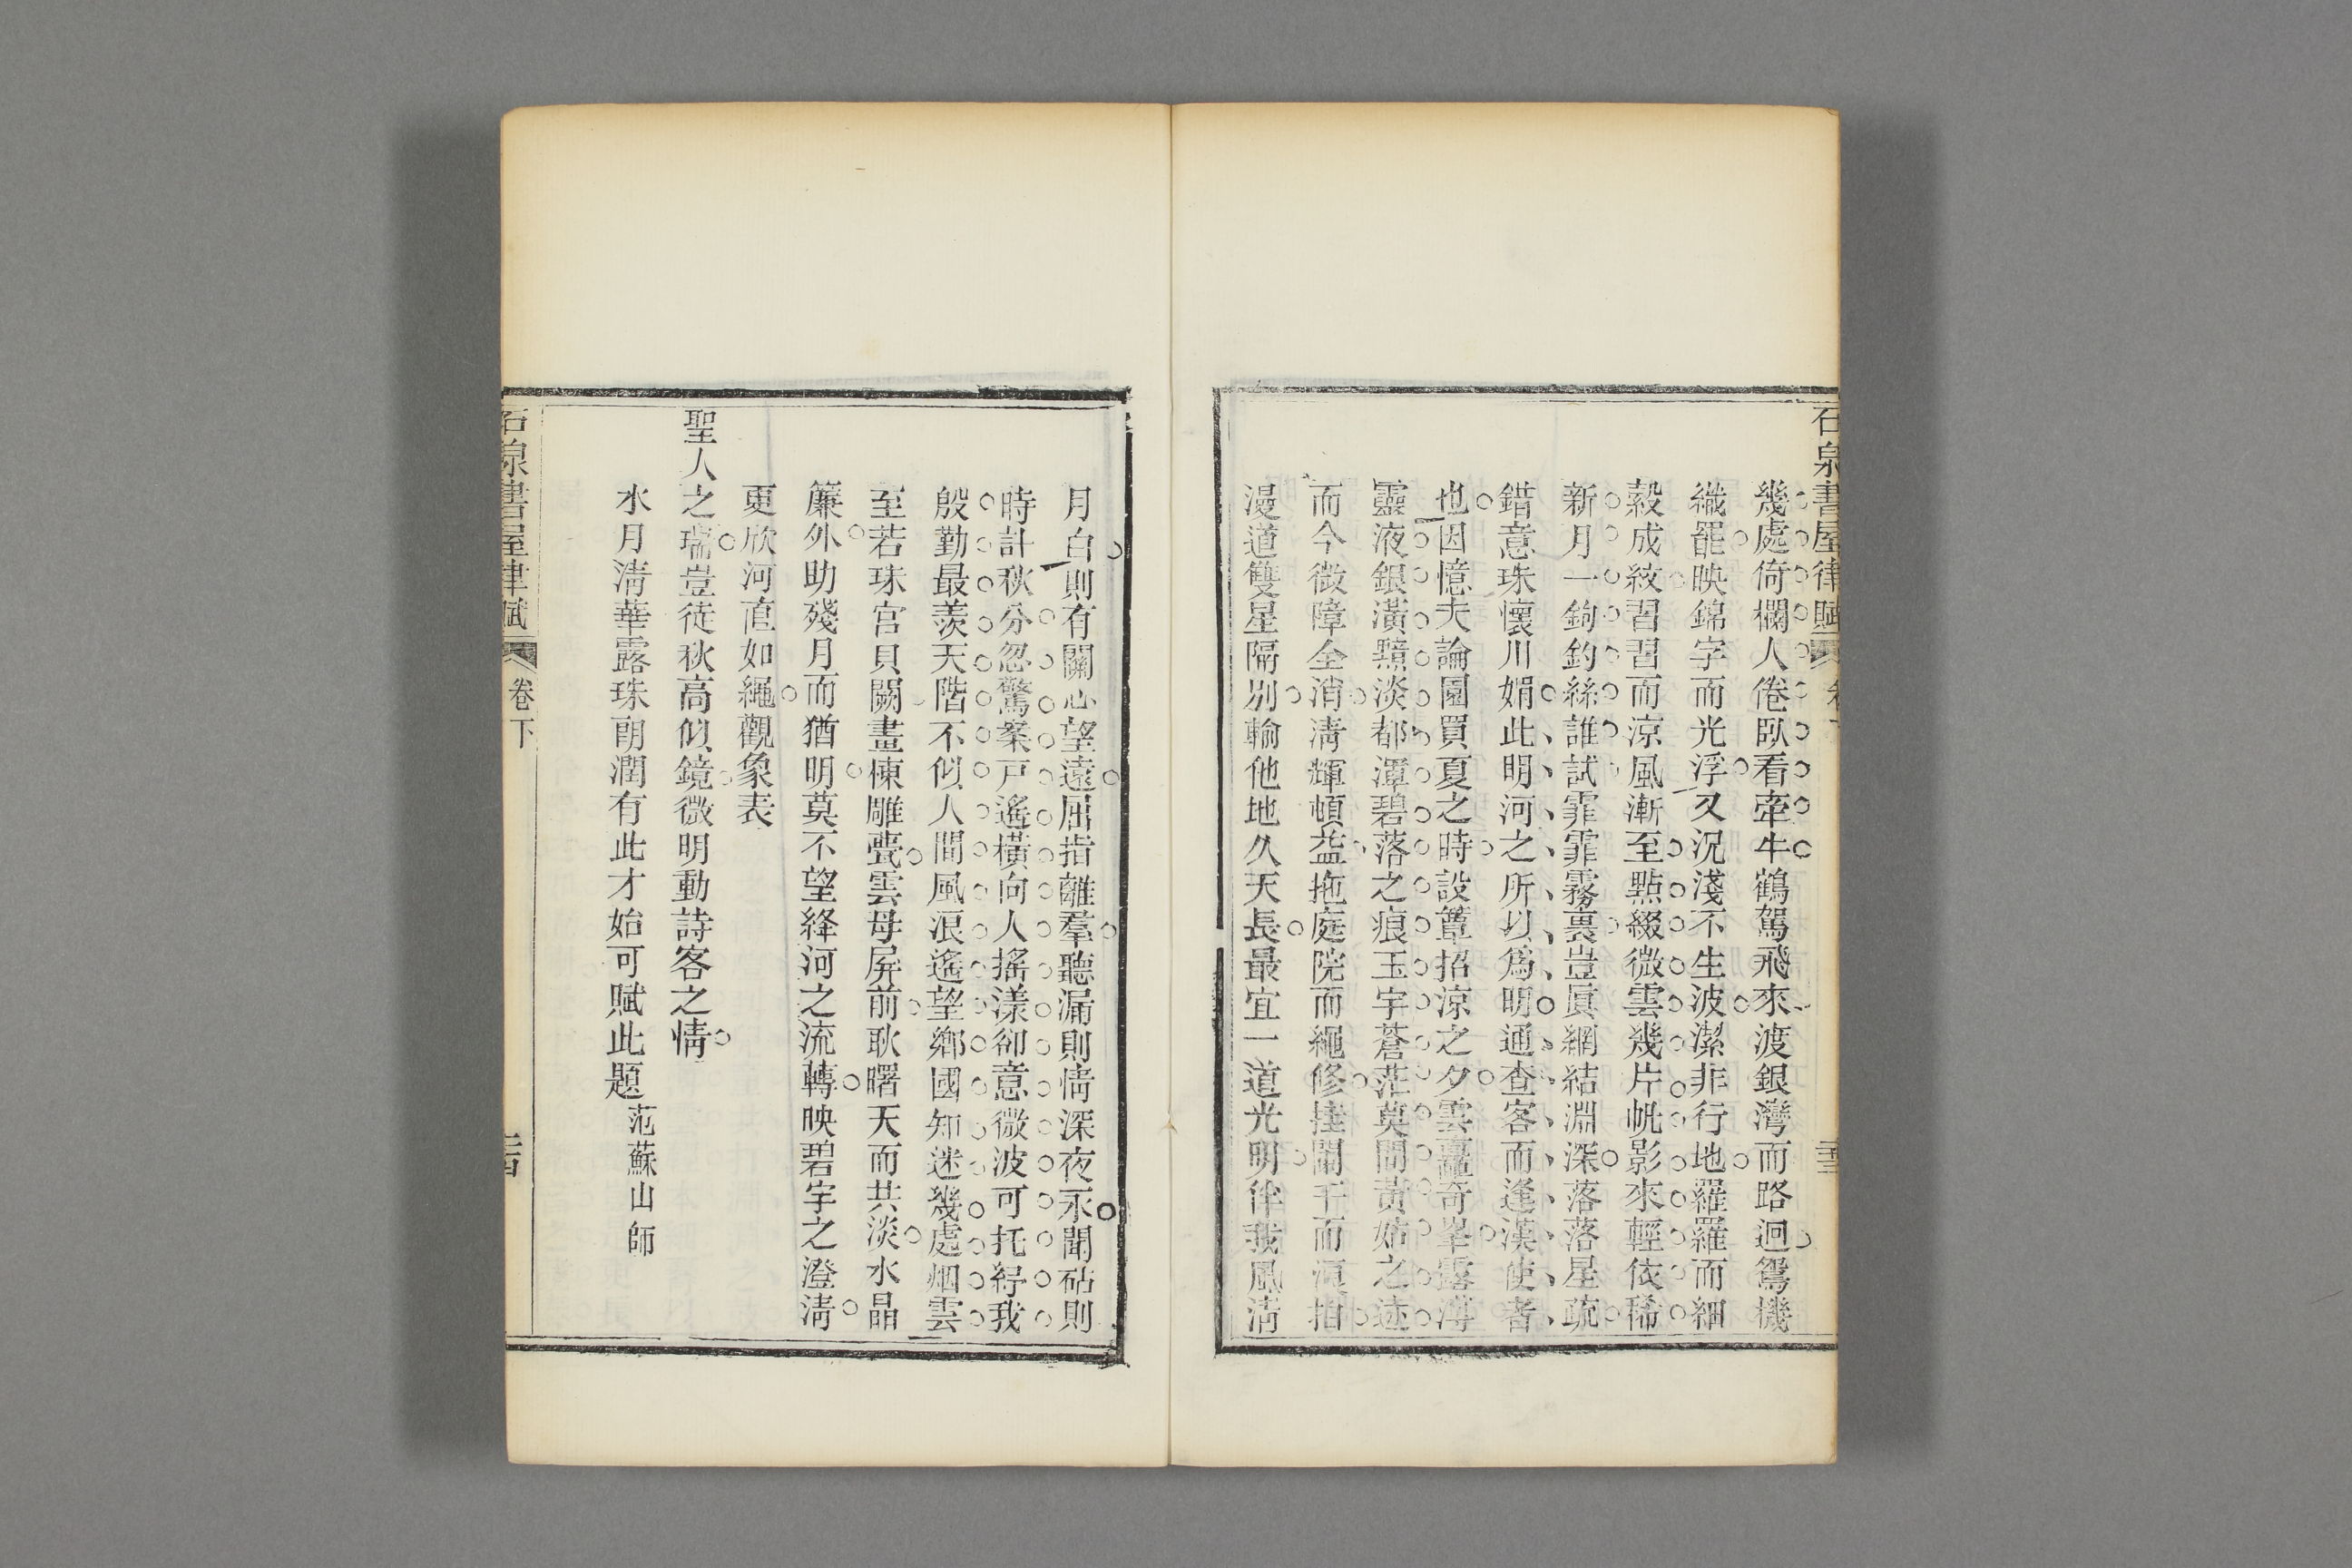 石泉書屋律賦
幾處倚欄人倦臥看牽牛鶴駕飛來渡銀灣而路迥鴛機
織罷映錦字而光浮又況淺不生波潔非行地羅羅而細
縠成紋習習而涼風漸至點綴微雲幾片帆影來輕依稀
新月一鉤釣絲誰試霏霏霧裏豈眞網結淵深落落星疏
錯意珠懷川媚此明河之所以爲明通查客而逢漢使者
也因憶夫論園買夏之時設簟招涼之夕雲矗奇峯露溥
靈液銀潢黯淡都潭碧落之痕玉宇蒼茫莫問黃姑之迹
而今微障全消淸輝頓益拖庭院而繩修挂闌干而
漫道雙星隔別輸他地久天長最宜一道光明伴我風淸
月白則有關心望遠屈指離羣聽漏則情深夜永聞砧則
時計秋分忽驚案戸遙橫向人搖漾卻意微波可托紓我
殷勤最羨天階不似人間風浪遙望鄕國知迷幾處烟雲
至若珠宮貝闕畫棟雕甍雲母屏前耿曙天而共淡水晶
簾外助殘月而猶明莫不望絳河之流轉映碧宇之澄淸
更欣河直如繩觀象表
聖人之瑞豈徒秋高似鏡微明動詩客之情
水月淸華露珠朗潤有此才始可賦此題 范蘇山師
石泉書屋律賦 卷下